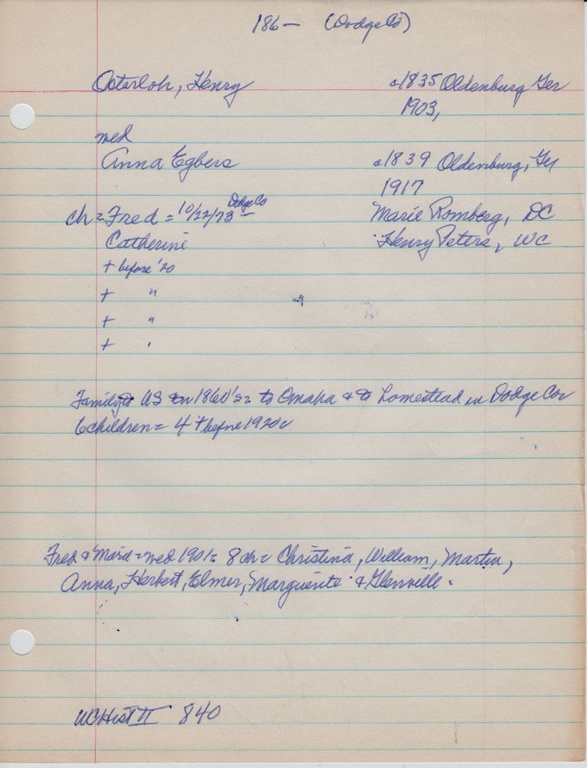 186— (Dodge Co)
Osterloh, Henry c1835 Oldenburg Ger
1903,
med
Anna Egbers c1839 Oldenburg, Ger
1917
ch = Fred = 10/22/73 Dodge Co Marie Romberg, DC
Catherine Henry Peters, WC
+ before '20
+ "
+ "
+ "
Family to US in 1860's = to Omaha & to homestead in Dodge Co
6 children = 4 + before 1920
Fred & Marie = med 1901 = 8 ch = Christina, William, Martin,
Anna, Herbert, Elmer, Marguerite & Glenville.
WCHist II 840